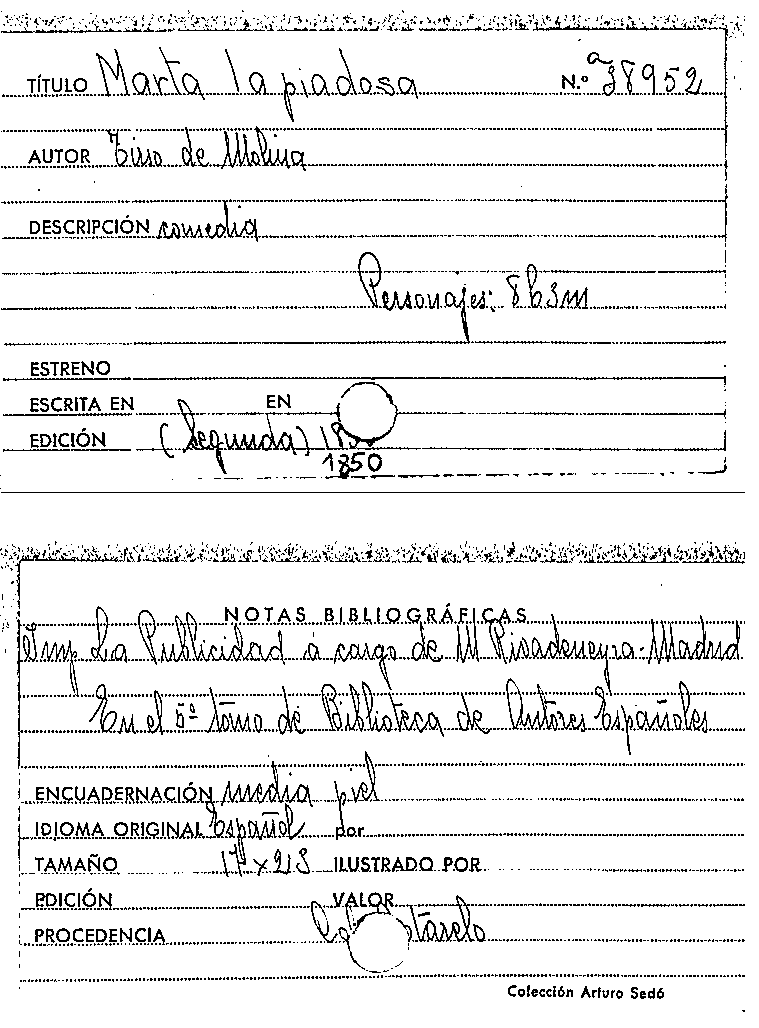 TÍTULO Marta la piadosa N.º 38952
AUTOR Tirso de Molina
DESCRIPCIÓN comedia
Personajes: 8h3m
ESTRENO
ESCRITA EN EN
EDICIÓN (Segunda)
1850
NOTAS BIBLIOGRÁFICAS
Imp La Publicidad á cargo de M Rivadeneyra-Madrid
En el 5º tomo de Biblioteca de Autores Españoles
ENCUADERNACIÓN media piel
IDIOMA ORIGINAL Español por
TAMAÑO ILUSTRADO POR
EDICIÓN VALOR
PROCEDENCIA
Colección Arturo Sedó